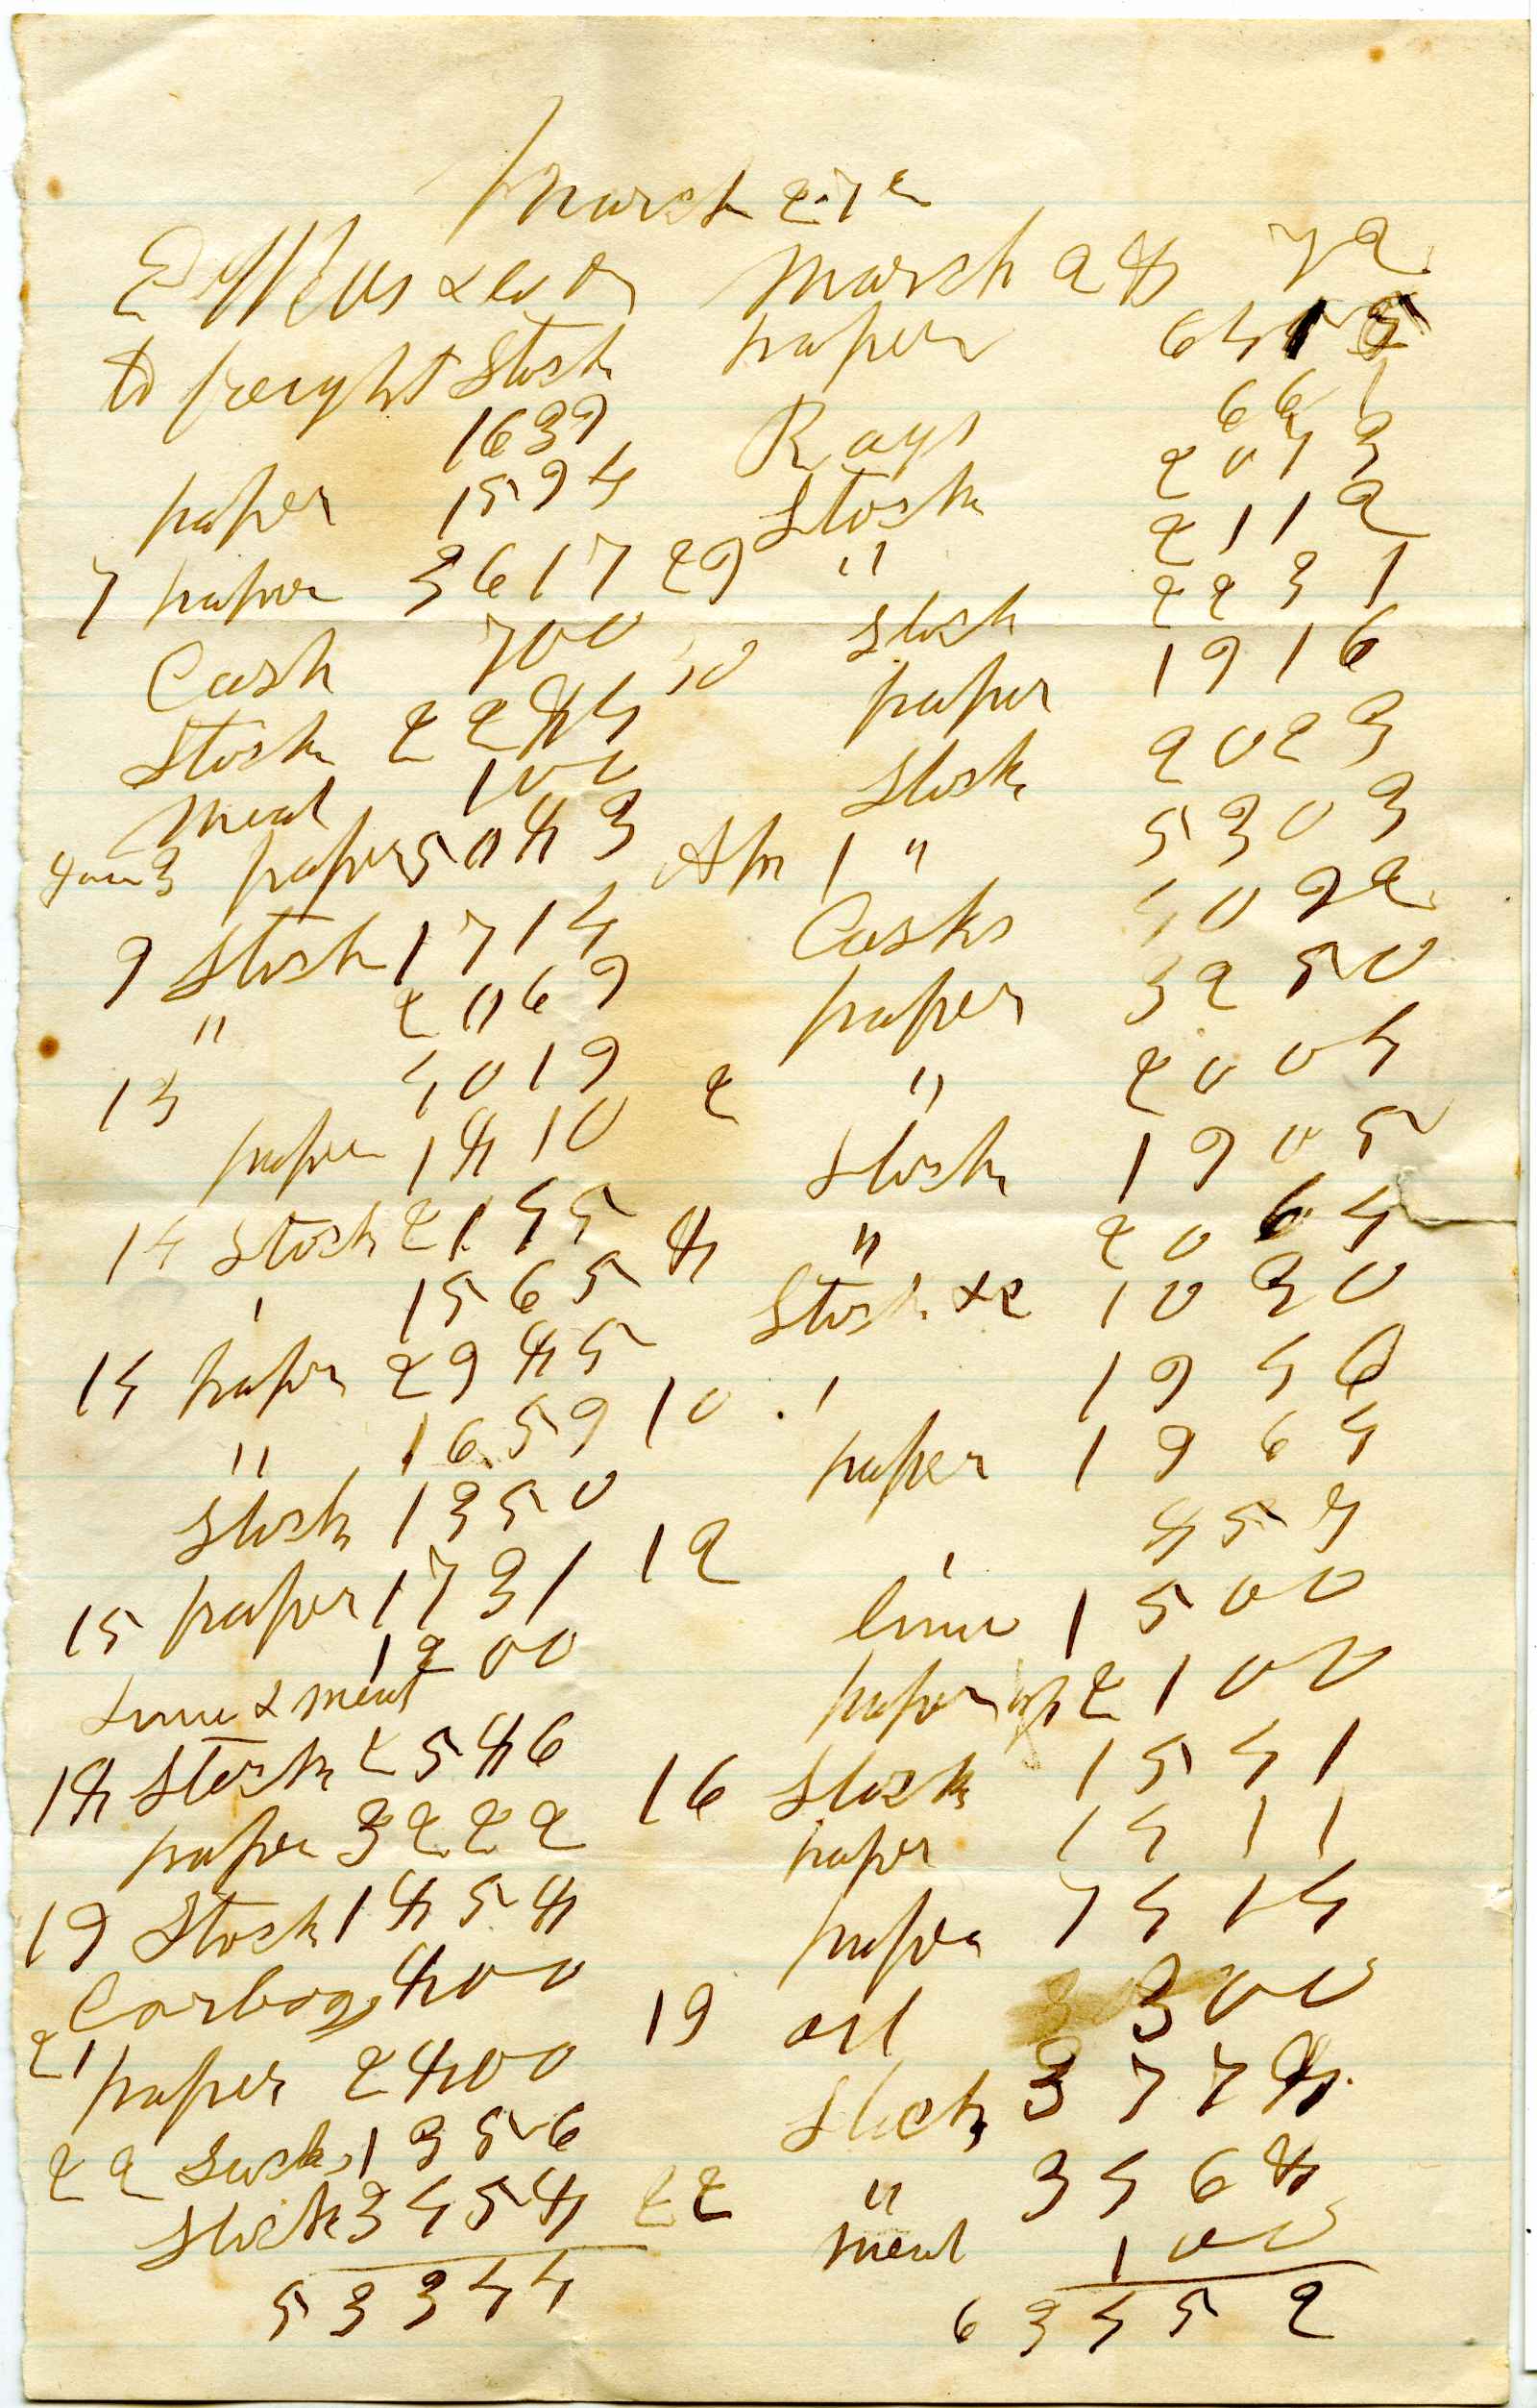 March 27
& Co Dr March 28 72
to freight Stock paper 6415
1639 Rags 661
paper 1594 Stock 2073
7 paper 3617 29 " 2112
Cash 700 Stock 2231
Stock 2284 30 paper 1916
Meal 100 Stock 2023
Jan 3 paper 5083 Apr 1 " 5303
9 Stock 1714 Casks 4092
" 2069 paper 3250
13 4019 2 " 2004
paper 1810 Stock 1905
14 Stock 2145 8 " 2064
' 1565 Stock &c 1030
14 paper 2985 10 ' 1940
" 1659 paper 1964
Stock 1350 12 ' 857
15 paper 1731 lime 1500
1200
Lime & meal paper 2100
18 Stock 2586 16 Stock 1541
paper 3222 paper 1411
19 Stock 1858 paper 7414
Carboys 800 19 oil 300
21 paper 2800 Stock 3778
22 Sacks 1356 22 " 3468
Stock 3458 Meal 100
53344 63452